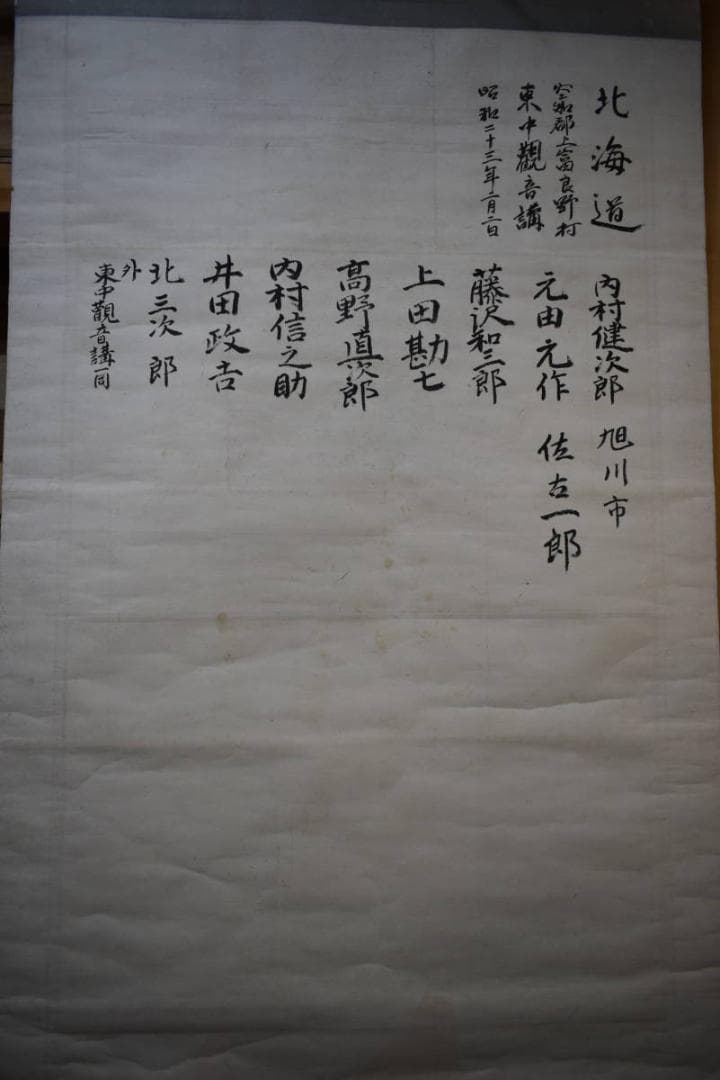 北海道
空知郡上富良野村
東中觀音講
昭和二十三年二月二日
内村健次郎 旭川市
元由元作 佐古一郎
藤沢和三郎
上田勘七
高野直次郎
内村信之助
井田政吉
北三次郎
外
東中觀音講一同